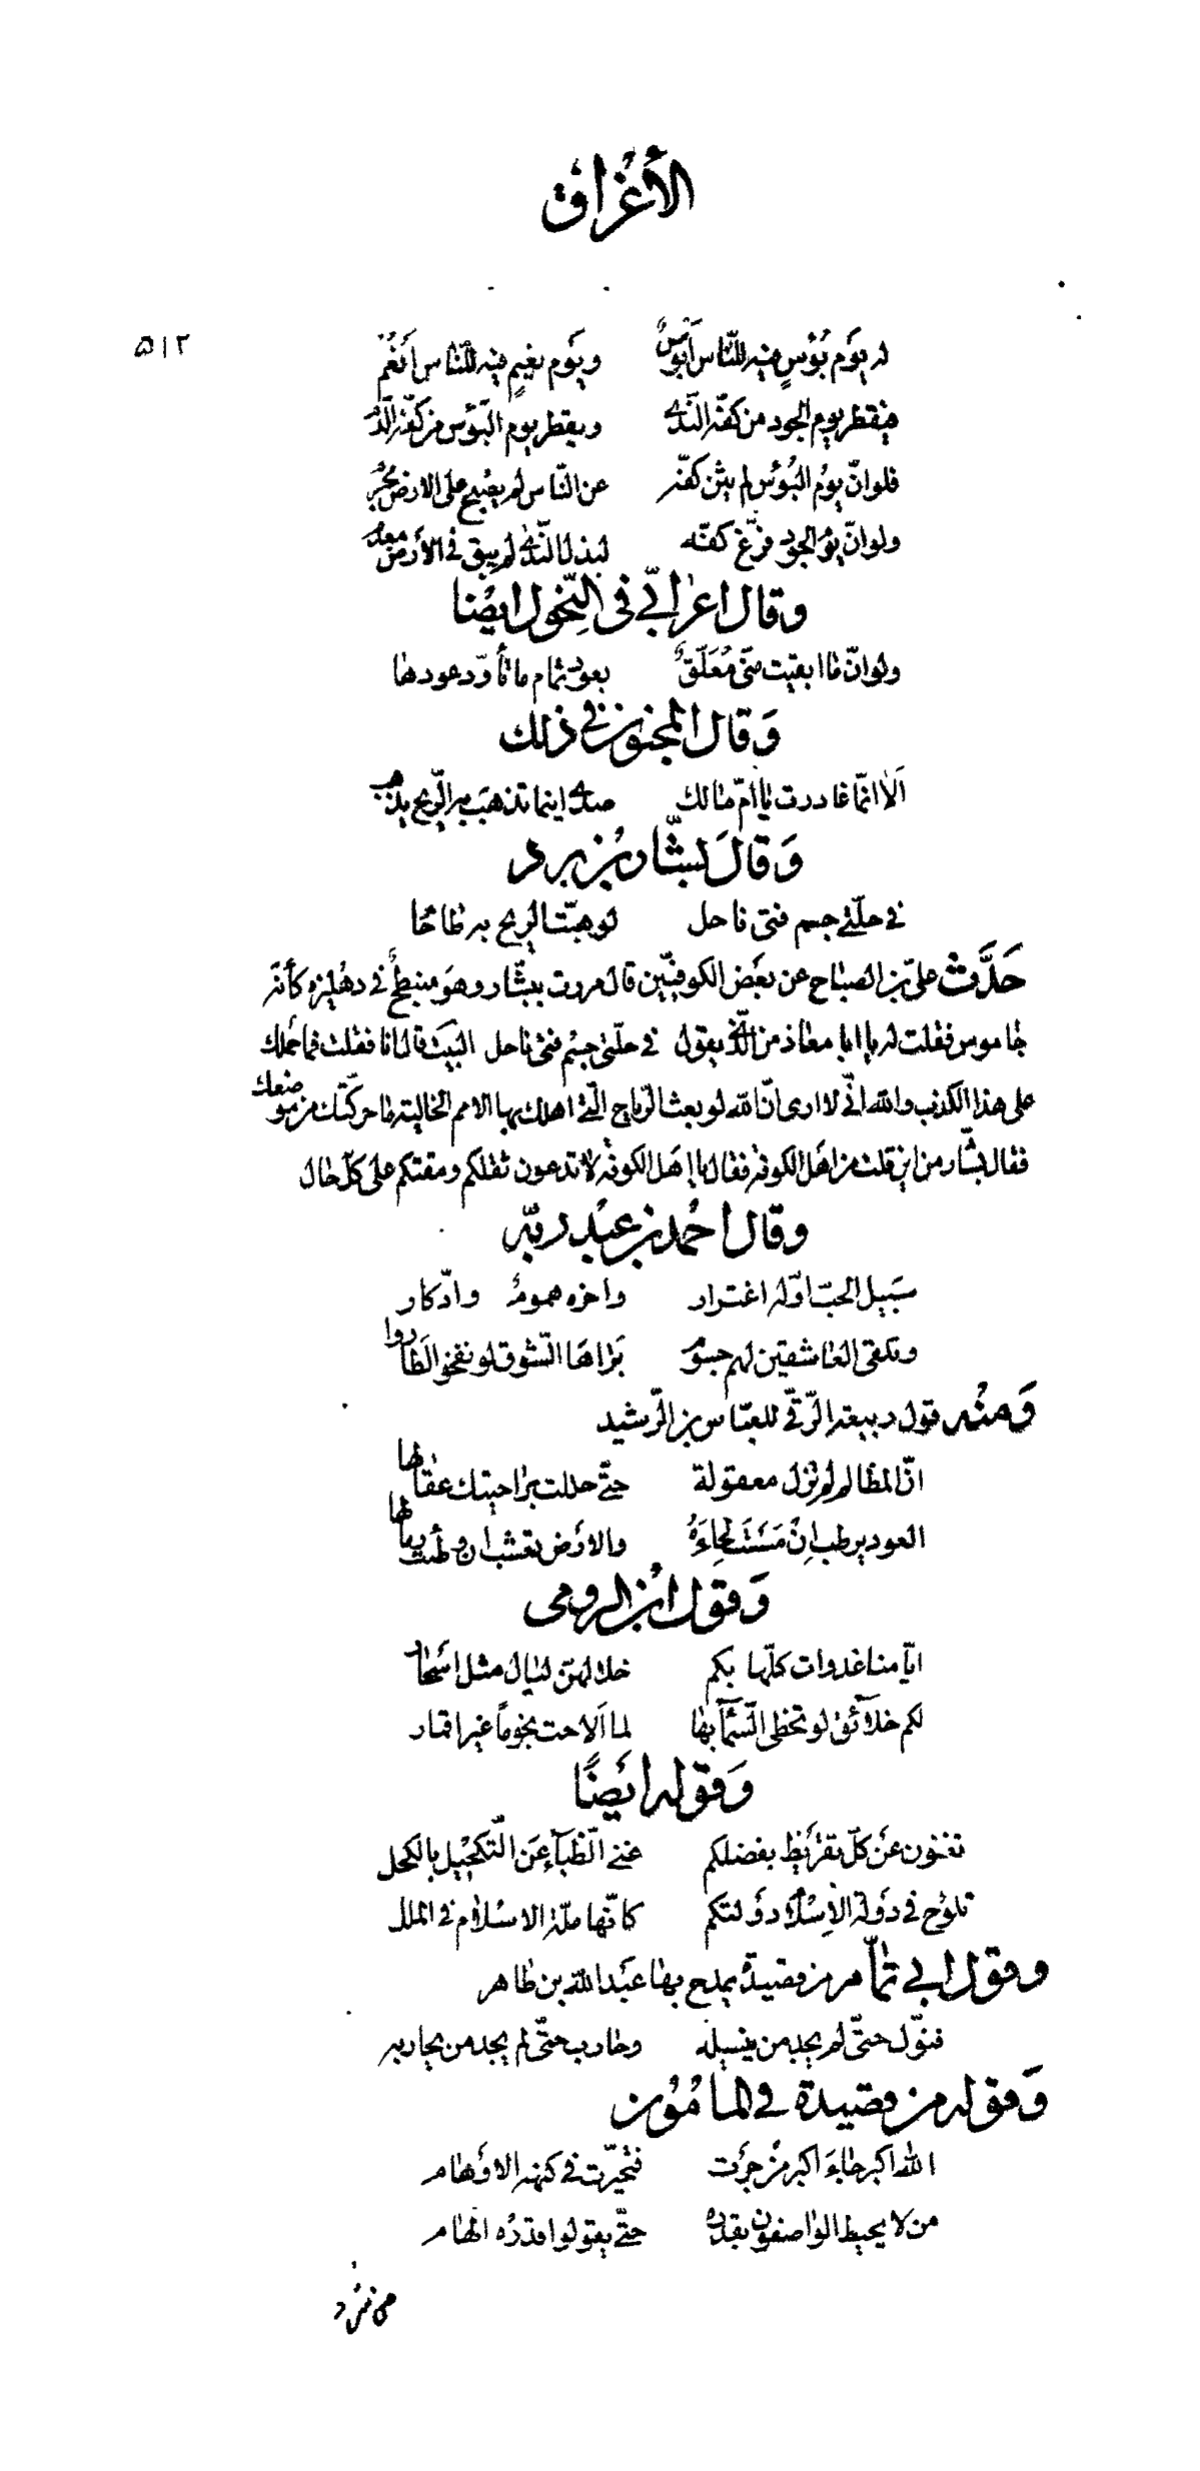 الأغراق
۵۱۲
له يوم بؤس فيه للنّاس أبؤس   ويوم نعيم فيه للنّاس أنعم
فيقطر يوم الجود من كفّه النّدى   ويقطر يوم البؤس من كفّه الدّم
فلو انّ يوم البُؤس لم يثن كفّه   عن النّاس لم يصبح على الارض مجرم
ولو انّ يوم الجود فرّغ كفّه   لبذل النّدى لم يبق في الأرض معدم
وقال اعرابيّ في النّحول ايضا
ولو انّ ما ابقيت منّي مُعَلّق   بعود ثمام ما تأوّد عودها
وَقال المجنون في ذلك
اَلا انّما غادرت يا امّ مالك   صدى اينما تذهب به الرّيح يذهب
وَقالَ بشّار بن برد
في حلّتي جسم فتى ناحل   لو هبّت الريح به طاحا
حَدَّث علىّ بن الصباح عن بعض الكوفيّين قال مررت ببشّار وهو منبطح في دهليزه كأنّه
جاموس فقلت له يا ابا معاذ من الّذي يقول في حلّتي جسم فتى ناحل البيت قال انا فقلت فما حملك
على هذا الكذب والله انّي لا ارى انّ الله لو بعث الرّياح الّتي اهلك بها الامم الخالية ما حركتك من موضعك
فقال بشّار من اين قلت من اهل الكوفة فقال يا اهل الكوفة لا تدعون ثقلكم ومقتكم على كلّ حال
وقال احمد بن عبد ربّه
سَبيل الحبّ اوّله اغترار   واخره هموم وادّكار
وتلقى العاشقين لهم جسوم   بَراها الشّوق لو نفخوا لطاروا
وَمنْه قول ربيعة الرّقّي للعبّاس بن الرّشيد
انّ المظالم لم تزل معقولة   حتّى حللت براحتيك عقالها
العود يرطب اِنْ مَسَسْتَ لحاءَهُ   والارض تعشب ان وطئت رمالها
وَقول ابن الرومي
ايّامنا غدوات كلّها بكم   خلالهنّ ليال مثل اسحار
لكم خلآئق لو تحظى السّمآ بها   لما اَلاحت نجوما غير اقمار
وَقوله ايضًا
تغنون عن كلّ تقريظ بفضلكم   غنى الظّبآء عَن التّكحيل بالكحل
تلوح في دَولة الاِسْلام دَولتكم   كانّها ملّة الاسلام في الملل
وقول ابي تمّام من قصيدة يمدح بها عبد الله بن طاهر
فنوّل حتّى لم يجد من ينيله   وحارب حتّى لم يجد من يحاربه
وَقوله من قصيدة في المأمُون
الله اكبر جاءَ اكبر من جرَت   فتحيّرت في كنهه الاوهام
من لا يحيط الواصفون بقدره   حتّى يقولوا قدرُه الهام